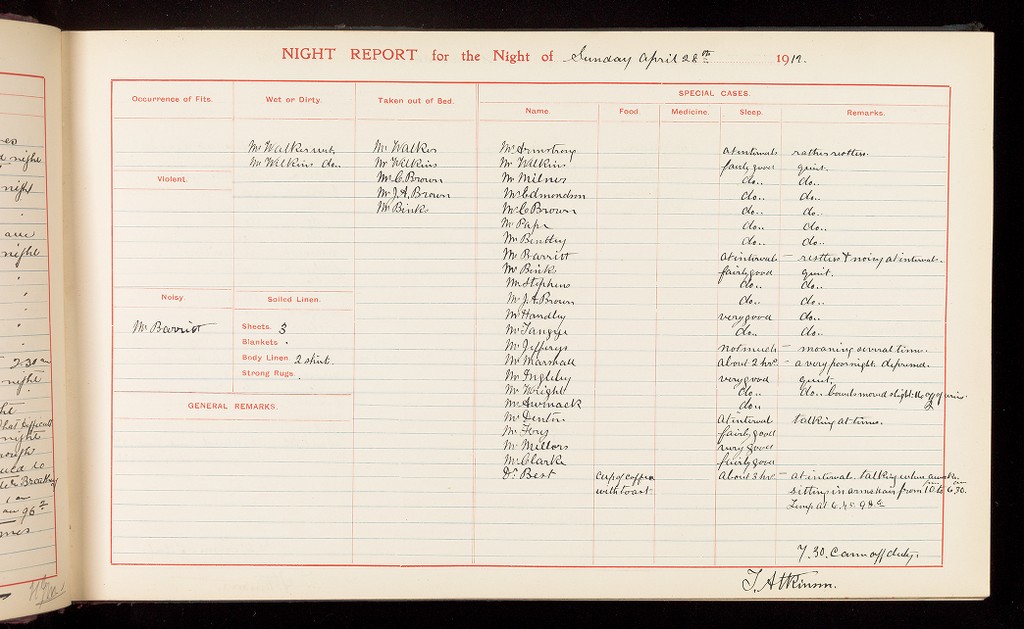 NIGHT REPORT for the Night of Sunday April 28th 1912.
Occurrence of Fits. Wet or Dirty. Taken out of Bed. SPECIAL CASES.
Name. Food. Medicine. Sleep. Remarks.
Mr Walker wet Mr Walker Mr Armstrong at intervals rather restless.
Mr Wilkins do.. Mr Wilkins Mr Wilkins fairly good quiet.
Violent. Mr C. Brown Mr Milner do.. do..
Mr J.A. Brown Mr Edmondson do.. do..
Mr Binks Mr C Brown do.. do..
Mr Pape do.. do..
Mr Bentley do.. do..
Mr Barritt at intervals – restless & noisy at intervals.
Mr Binks fairly good quiet.
Mr Stephens do.. do..
Noisy. Soiled Linen. Mr J.A. Brown do.. do..
Mr Handley very good do..
Mr Barritt Sheets. 3 Mr Tangye do.. do..
Blankets . Mr Jefferys not much – moaning several times.
Body Linen. 2 shirts. Mr Marshall about 2 hrs. – a very poor night. depressed.
Strong Rugs. . Mr Ingleby very good quiet.
Mr Wright do.. do.. bowels moved slight.
Mr do..
GENERAL REMARKS. Mr Denton at intervals talking at times.
Mr fairly good
Mr Millors very good
Mr Clarke fairly good
Dr. Best cup of coffee about 3 hrs. – at intervals. talking when awake.
with toast sitting in armchair from 10 pm to 6.30 am.
Temp at 6.45
7.30. Came off duty.
T. Atkinson.
night
night
are
night
2-30 am
night
that difficult
night
to
am 96